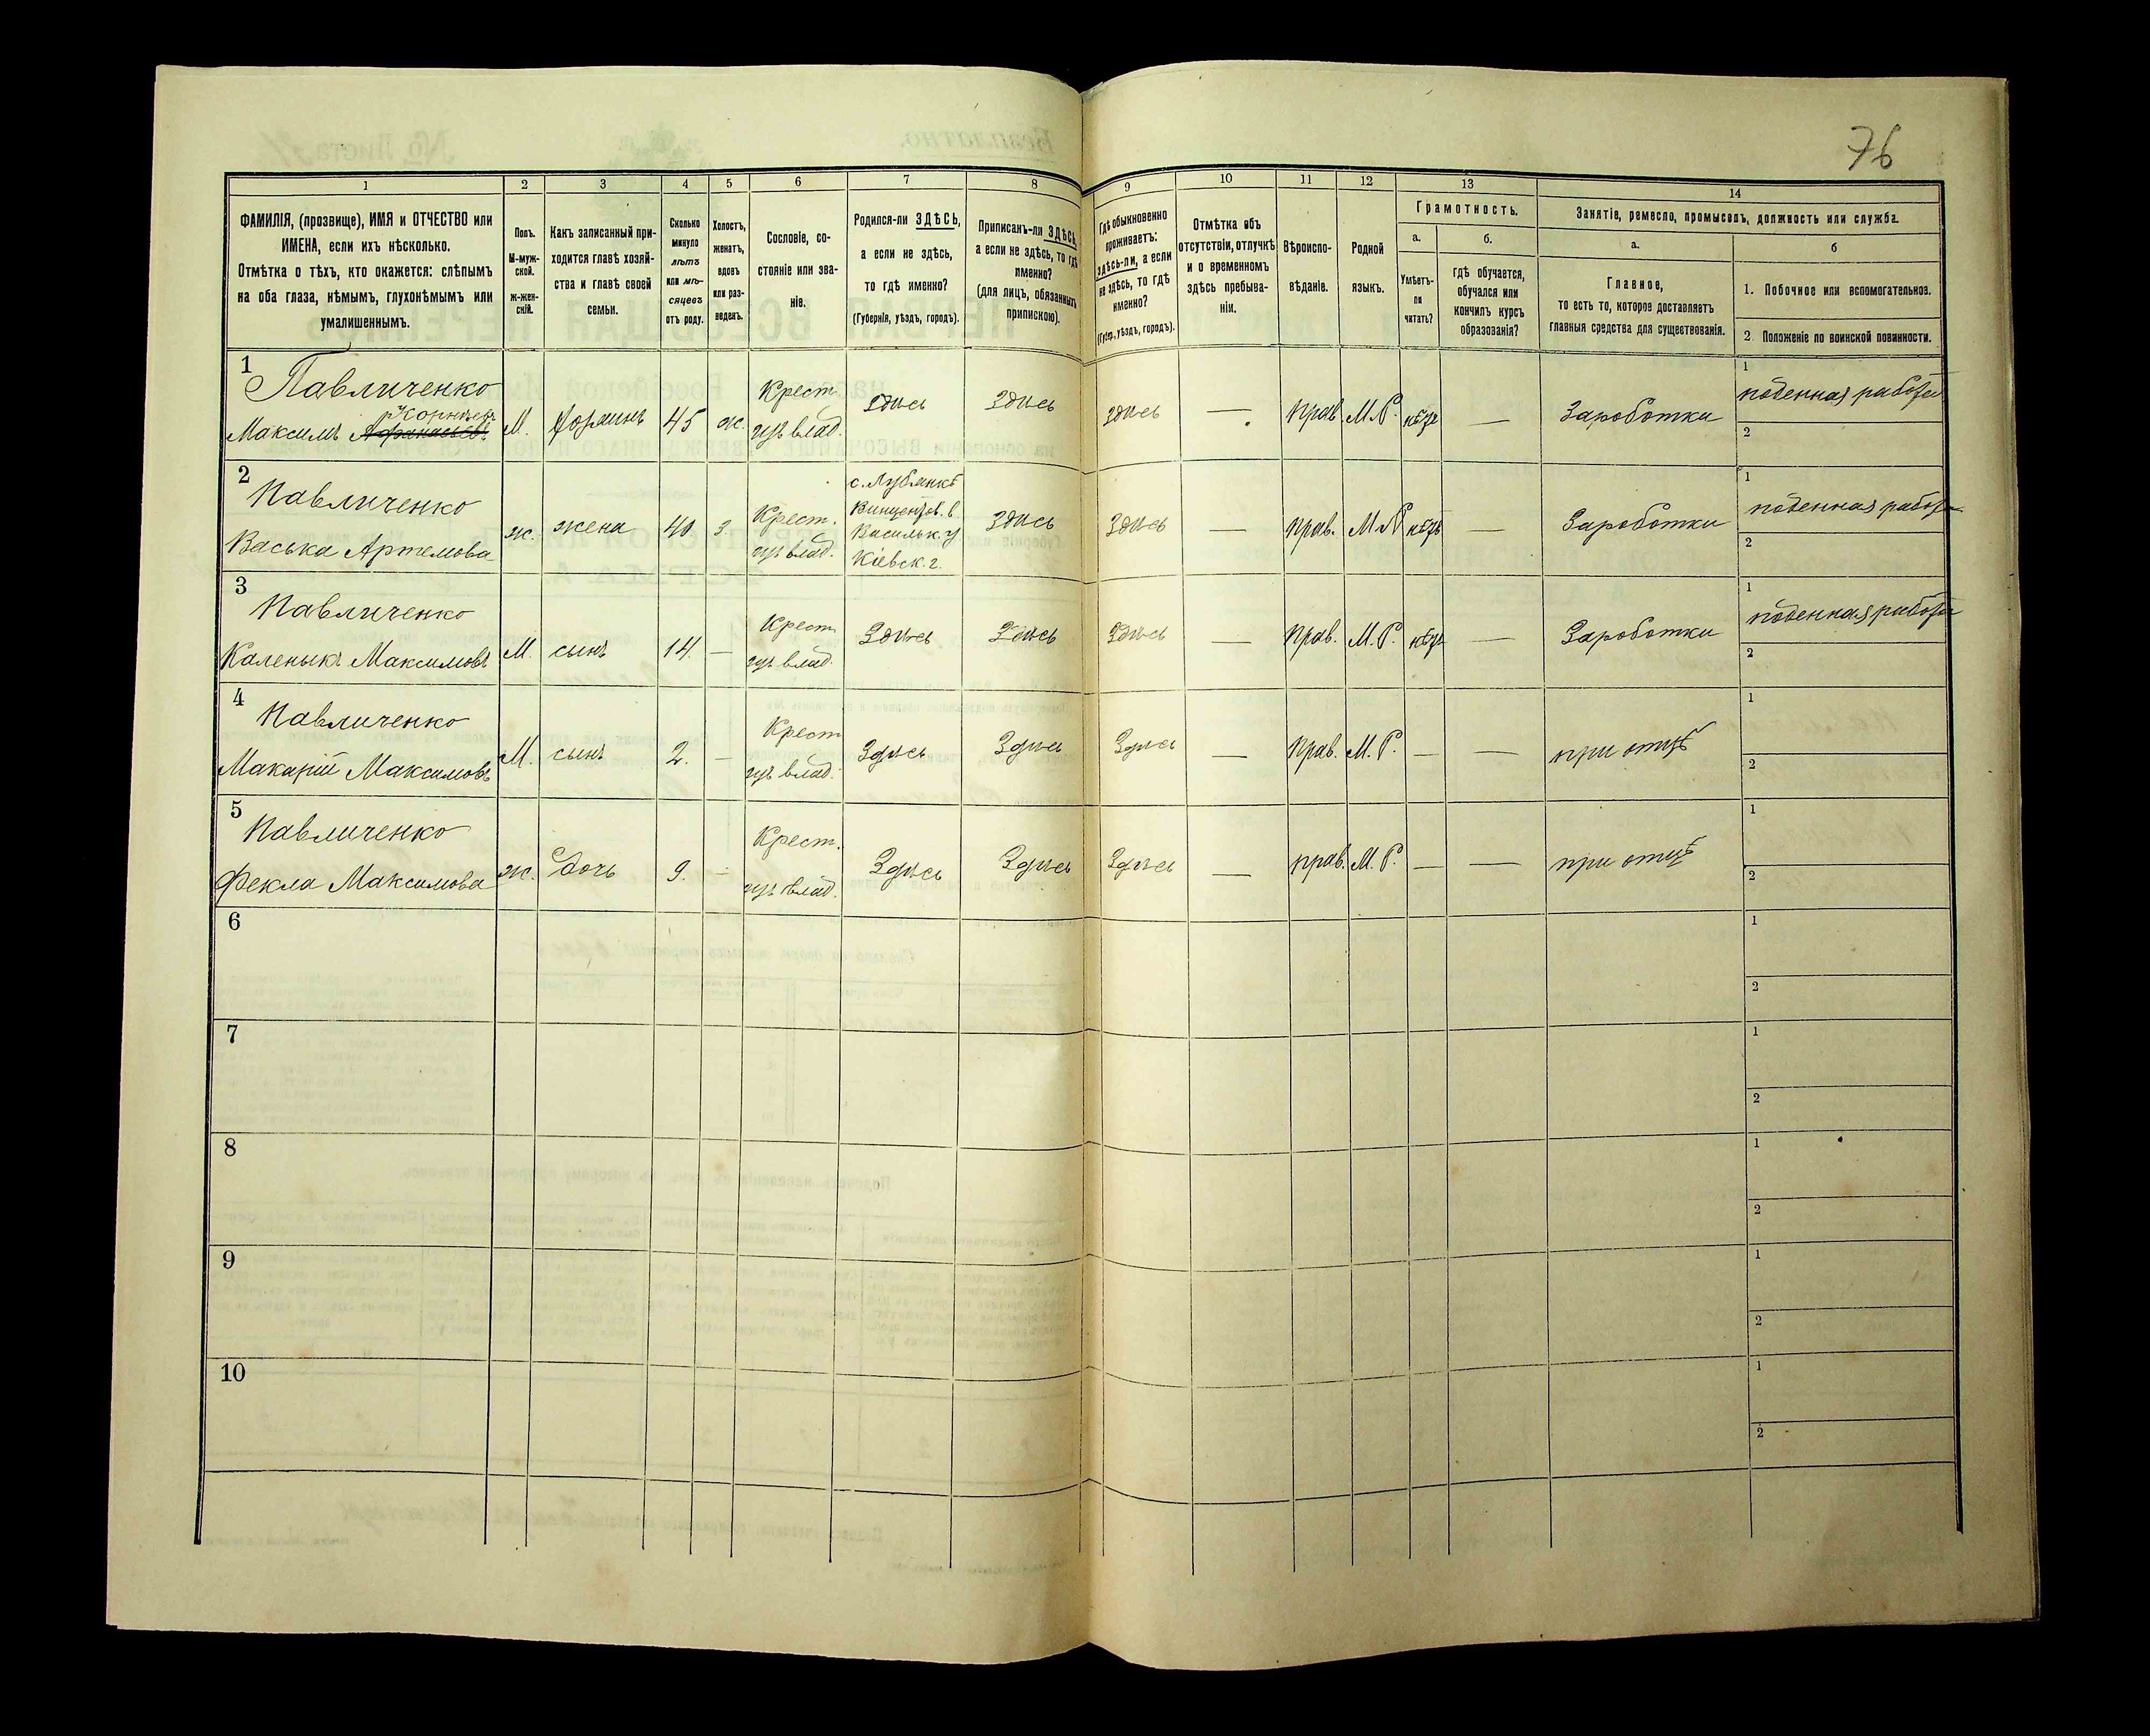 76
1 2 3 4 5 6 7 8 9 10 11 12 13 14
ФАМИЛІЯ, (прозвище), ИМЯ и ОТЧЕСТВО или
ИМЕНА, если ихъ нѣсколько.
Отмѣтка о тѣхъ, кто окажется: слѣпымъ
на оба глаза, нѣмымъ, глухонѣмымъ или
умалишеннымъ.
Полъ.
М-муж-
ской.
ж-жен-
скій.
Какъ записанный при-
ходится главѣ хозяй-
ства и главѣ своей
семьи.
Сколько
минуло
лѣтъ
или мѣ-
сяцевъ
отъ роду.
Холостъ,
женатъ,
вдовъ
или раз-
веденъ.
Сословіе, со-
стояніе или зва-
ніе.
Родился-ли ЗДѢСЬ,
а если не здѣсь,
то гдѣ именно?
(Губернія, уѣздъ, городъ).
Приписанъ-ли ЗДѢСЬ,
а если не здѣсь, то гдѣ
именно?
(для лицъ, обязанныхъ
припискою).
Гдѣ обыкновенно
проживаетъ:
здѣсь-ли, а если
не здѣсь, то гдѣ
именно?
(Губер., уѣздъ, городъ).
Отмѣтка объ
отсутствіи, отлучкѣ
и о временномъ
здѣсь пребыва-
ніи.
Вѣроиспо-
вѣданіе.
Родной
языкъ.
Грамотность.
а.
Умѣетъ-
ли
читать?
б.
гдѣ обучается,
обучался или
кончилъ курсъ
образованія?
Занятіе, ремесло, промыселъ, должность или служба.
а.
Главное,
то есть то, которое доставляетъ
главныя средства для существованія.
б
1. Побочное или вспомогательное.
2. Положеніе по воинской повинности.
1
Павличенко
Корнѣевъ
Максимъ Афанасьевъ
М.
45
ж.
Крест.
влад.
Здись
Здись
Здись
—
прав.
М.Р.
—
Зароботки
1 поденная работа
2
2
Павличенко
Васька Артемова
ж.
жена
40
з.
Крест.
влад.
с. Лубянкѣ
Винцентов. в.
Васильк. у
Кіевск. г.
Здись
Здись
—
прав.
М Р
—
Зароботки
1 поденная работа
2
3
Павличенко
Каленыкъ Максимовъ
М.
сынъ
14.
—
Крест
влад.
Здись
Здись
Здись
—
прав.
М.Р.
—
Зароботки
1 поденная работа
2
4
Павличенко
Макарій Максимовъ
М.
сынъ
2.
—
Крест
влад.
Здись
Здись
Здись
—
прав.
М.Р.
—
—
при отцѣ
1
2
5
Павличенко
Фекла Максимова
ж.
дочь
9.
—
Крест.
влад.
Здись
Здись
Здись
—
прав.
М.Р.
—
—
при отцѣ
1
2
6
1
2
7
1
2
8
1
2
9
1
2
10
1
2